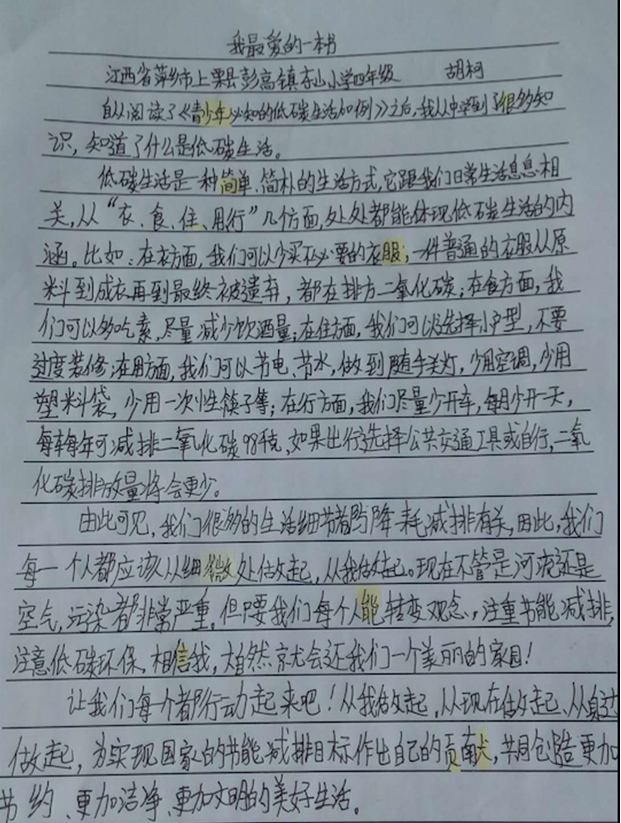 我最爱的一本书
江西省萍乡市上栗县彭高镇东山小学四年级 胡柯
自从阅读了《青少年必知的低碳生活如例》之后,我从中学到了很多知
识,知道了什么是低碳生活。
低碳生活是一种简单、简朴的生活方式,它跟我们日常生活息息相
关,从“衣、食、住、用行”几个方面,处处都能体现低碳生活的内
涵。比如:在衣方面,我们可以少买不必要的衣服,一件普通的衣服从原
料到成衣再到最终被遗弃,都在排放二氧化碳;在食方面,我
们可以多吃素,尽量减少饮酒量;在住方面,我们可以选择小户型,不要
过度装修;在用方面,我们可以节电、节水,做到随手关灯,少用空调,少用
塑料袋,少用一次性筷子等;在行方面,我们尽量少开车,每月少开一天,
每车每年可减排二氧化碳98千克,如果出行选择公共交通工具或自行,二氧
化碳排放量将会更少。
由此可见,我们很多的生活细节都与降耗减排有关,因此,我们
每一个人都应该从细微处做起,从我做起。现在不管是河流还是
空气,污染都非常严重,但只要我们每个人能转变观念,注重节能减排,
注意低碳环保,相信我,大自然就会还我们一个美丽的家园!
让我们每个都行动起来吧!从我做起,从现在做起,从身边
做起,为实现国家的节能减排目标作出自己的贡献,共同创造更加
节约、更加洁净、更加文明的美好生活。